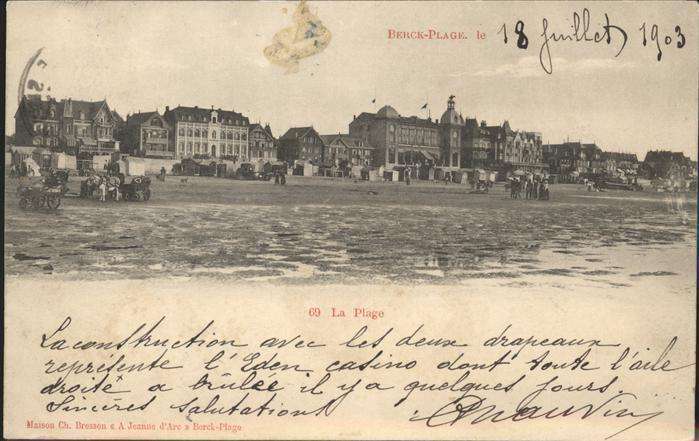 BERCK-PLAGE. le 18 Juillet 1903
69 La Plage
La construction avec les deux drapeaux
représente l'Eden casino dont toute l'aile
droite a brûlée il y a quelques jours
Sincères salutations
Maison Ch. Bresson « A Jeanne d'Arc » Berck-Plage